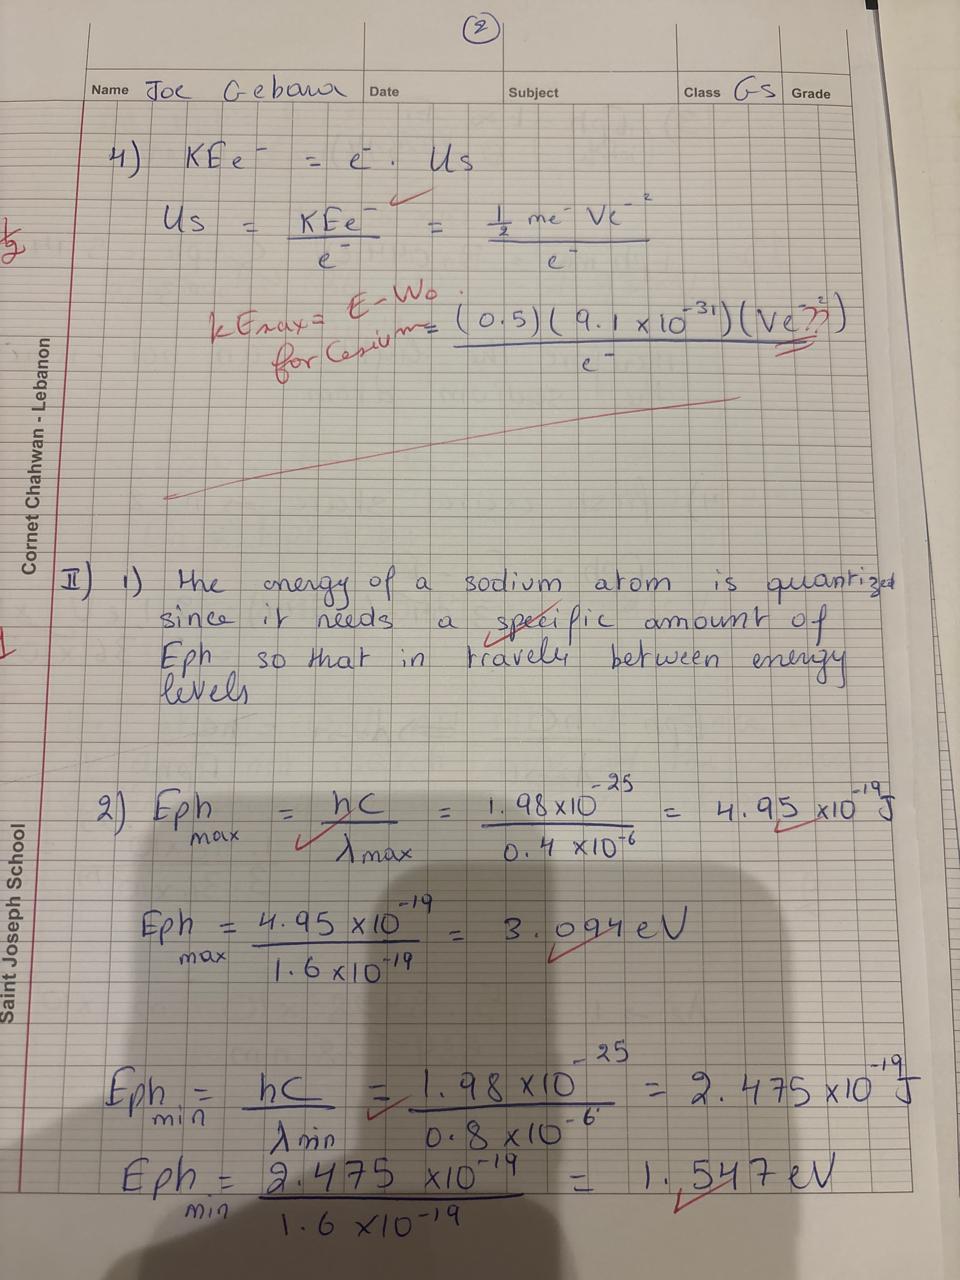 2
Name Joe Gebara Date Subject Class GS Grade
4) KEe⁻ = e⁻ . Us
Us = KEe⁻ / e⁻ = ½ me⁻ Ve⁻² / e⁻
½
KEmax = E-Wo.
for Cesium
= (0.5)(9.1 x10⁻³¹)(Ve⁻²) / e⁻
??
Cornet Chahwan - Lebanon
II) 1) the energy of a sodium atom is quantized
since it needs a specific amount of
1
Eph so that in travels between energy
levels
2) Eph max = hC / λmax = 1.98x10⁻²⁵ / 0.4 x10⁻⁶ = 4.95 x10⁻¹⁹J
Eph max = 4.95 x10⁻¹⁹ / 1.6 x10⁻¹⁹ = 3.094 eV
Eph min = hC / λmin = 1.98 x10⁻²⁵ / 0.8 x10⁻⁶ = 2.475 x10⁻¹⁹J
Eph min = 2.475 x10⁻¹⁹ / 1.6 x10⁻¹⁹ = 1.547 eV
Saint Joseph School